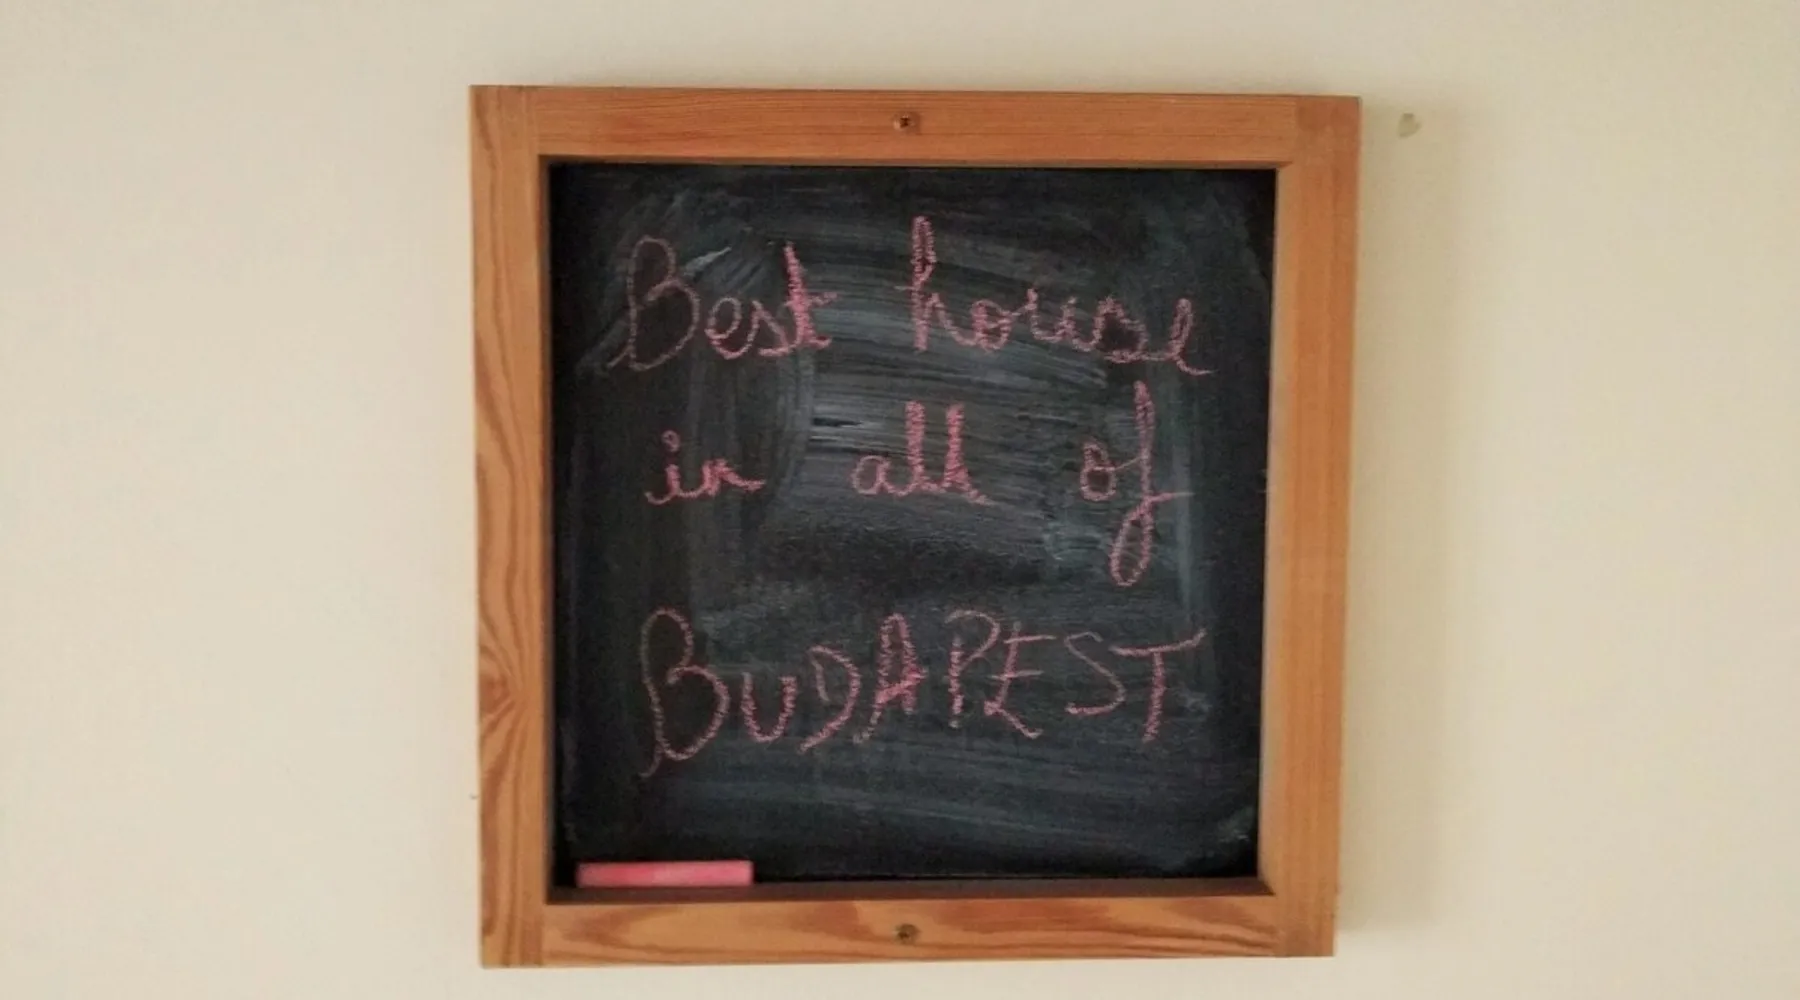 Best house
in all of
BUDAPEST